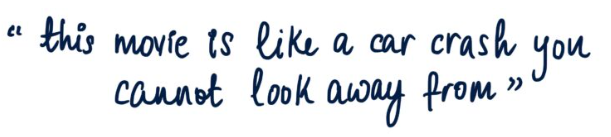 “ this movie is like a car crash you
cannot look away from ”